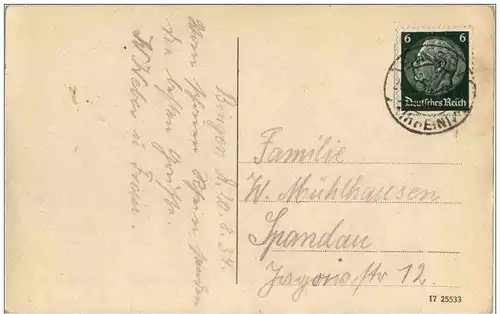 Bingen d. 10.8.34.
Vom schönen Rhein senden
die besten Grüße
W. Weber u. Frau.
6 6
Deutsches Reich
(RHEIN)
Familie
W. Mühlhausen
Spandau
Jagowstr 12.
17 25533